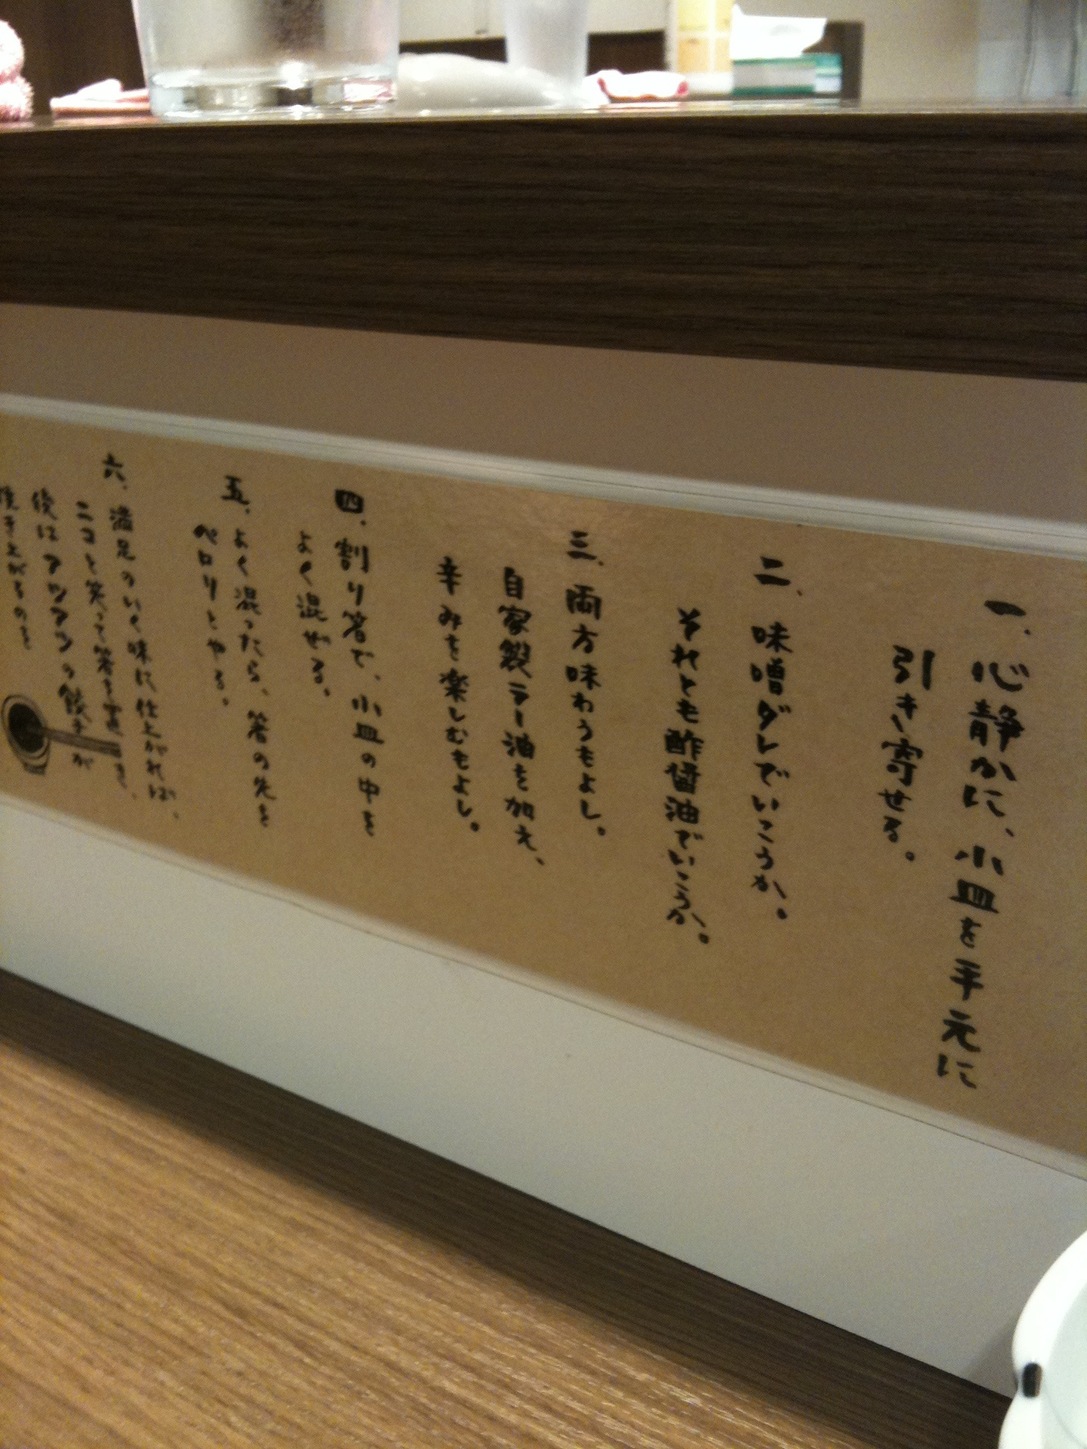 一、心静かに、小皿を手元に
引き寄せる。
二、味噌ダレでいこうか。
それとも酢醤油でいこうか。
三、両方味わうもよし。
自家製ラー油を加え、
辛みを楽しむもよし。
四、割り箸で、小皿の中を
よく混ぜる。
五、よく混ったら、箸の先を
ペロリとやる。
六、満足のいく味に仕上がれば、
ニコと笑って箸を置き、
後はアツアツの餃子が
焼き上がるのを